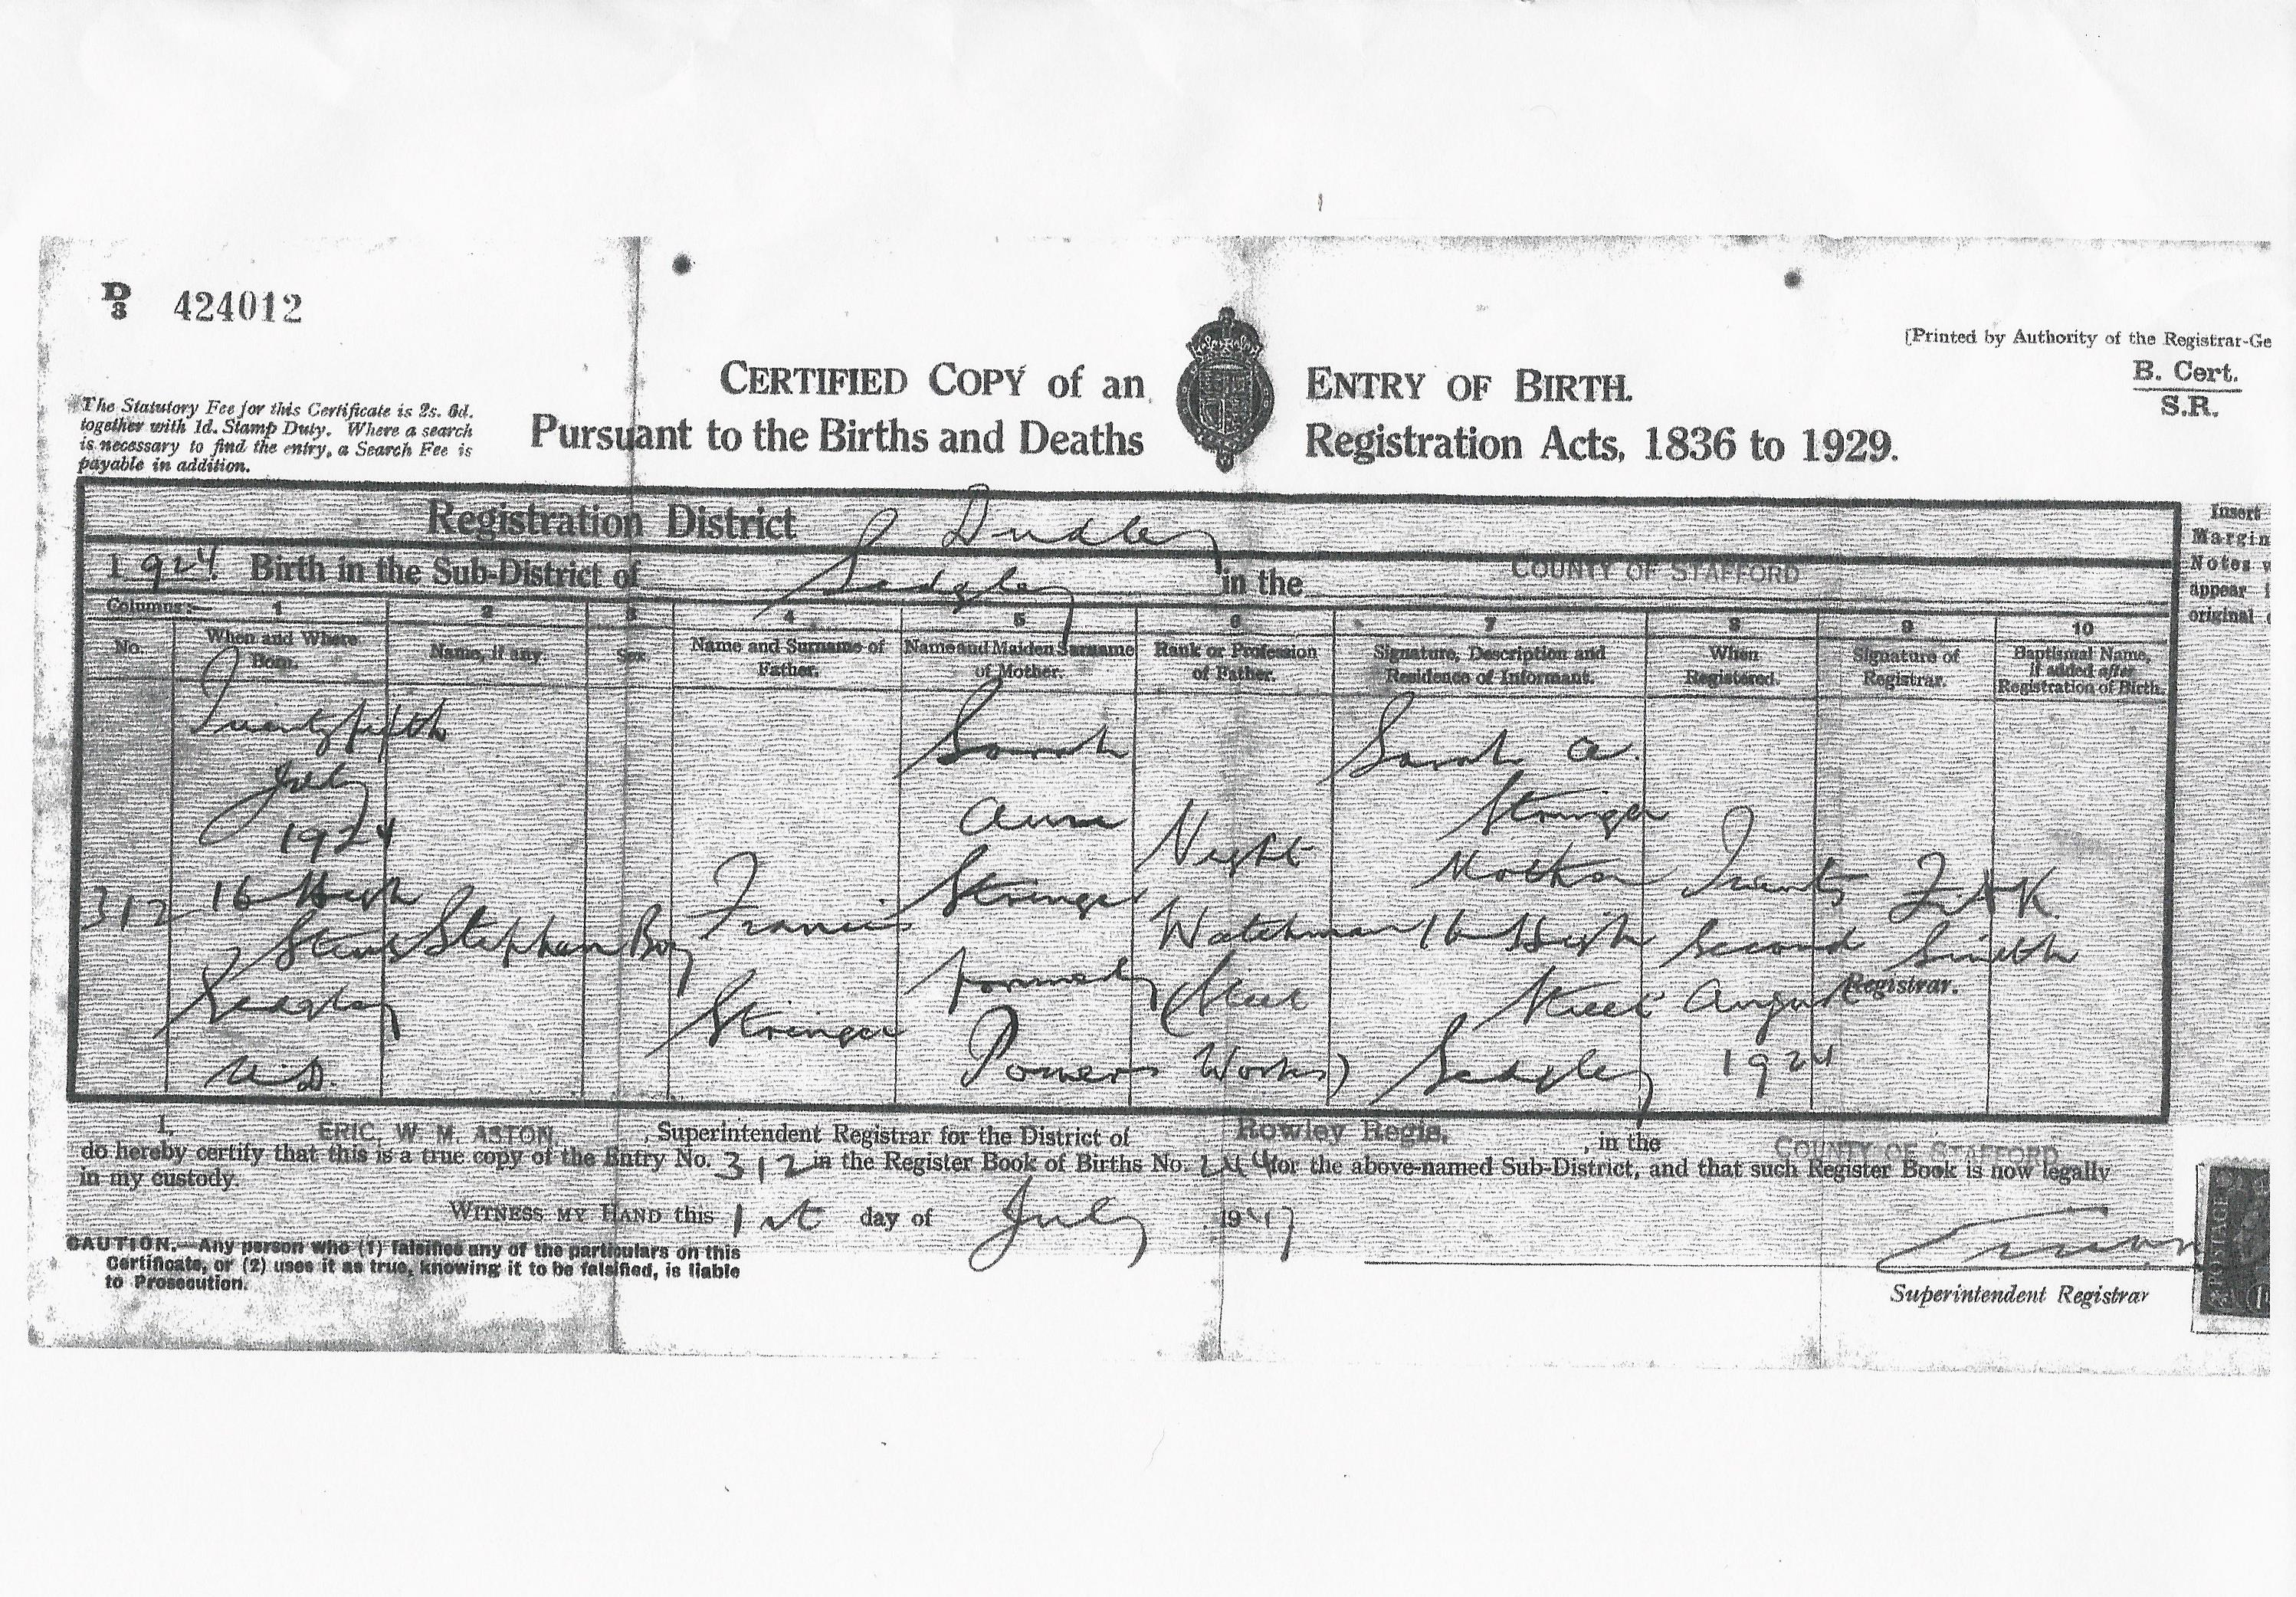 D
3 424012
[Printed by Authority of the Registrar-Ge
B. Cert.
S.R.
CERTIFIED COPY of an ENTRY OF BIRTH.
Pursuant to the Births and Deaths Registration Acts, 1836 to 1929.
The Statutory Fee for this Certificate is 2s. 6d.
together with 1d. Stamp Duty. Where a search
is necessary to find the entry, a Search Fee is
payable in addition.
Registration District Dudley
1924. Birth in the Sub-District of Sedgley in the COUNTY OF STAFFORD
Insert
Margin
Notes w
appear
original
Columns:— 1 2 3 4 5 6 7 8 9 10
No.
When and Where
Born.
Name, if any.
Sex.
Name and Surname of
Father.
Name and Maiden Surname
of Mother.
Rank or Profession
of Father.
Signature, Description and
Residence of Informant.
When
Registered.
Signature of
Registrar.
Baptismal Name,
if added after
Registration of Birth.
312
Twenty fifth
July
1924
16 High
Street
Sedgley
U.D.
Stephen
Boy
Francis
Stringer
Sarah
Anne
Stringer
formerly
Powers
Night
Watchman
(Steel
Works)
Sarah A.
Stringer
Mother
16 High
Street
Sedgley
Twenty
Second
August
1924
Smith
Registrar.
I, ERIC. W. M. ASTON. , Superintendent Registrar for the District of Rowley Regis. , in the COUNTY OF STAFFORD
do hereby certify that this is a true copy of the Entry No. 312 in the Register Book of Births No. 244 for the above-named Sub-District, and that such Register Book is now legally
in my custody.
WITNESS MY HAND this 1st day of July 1947
CAUTION.—Any person who (1) falsifies any of the particulars on this
Certificate, or (2) uses it as true, knowing it to be falsified, is liable
to Prosecution.
Superintendent Registrar
POSTAGE